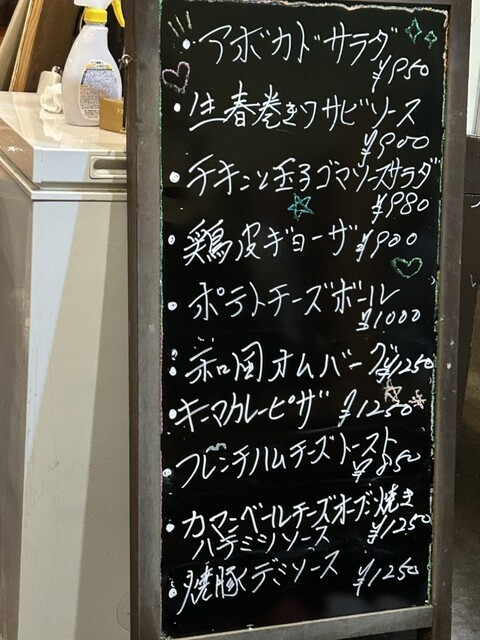 アボカドサラダ
¥950
生春巻きワサビソース
¥900
チキンと玉子ゴマソースサラダ
¥980
鶏皮ギョーザ ¥900
ポテトチーズボール
¥1000
和風オムバーグ ¥1250
キーマカレーピザ ¥1250
フレンチハムチーズトースト
¥850
カマンベールチーズオーブン焼き
ハチミツソース ¥1250
焼豚 デミソース ¥1250